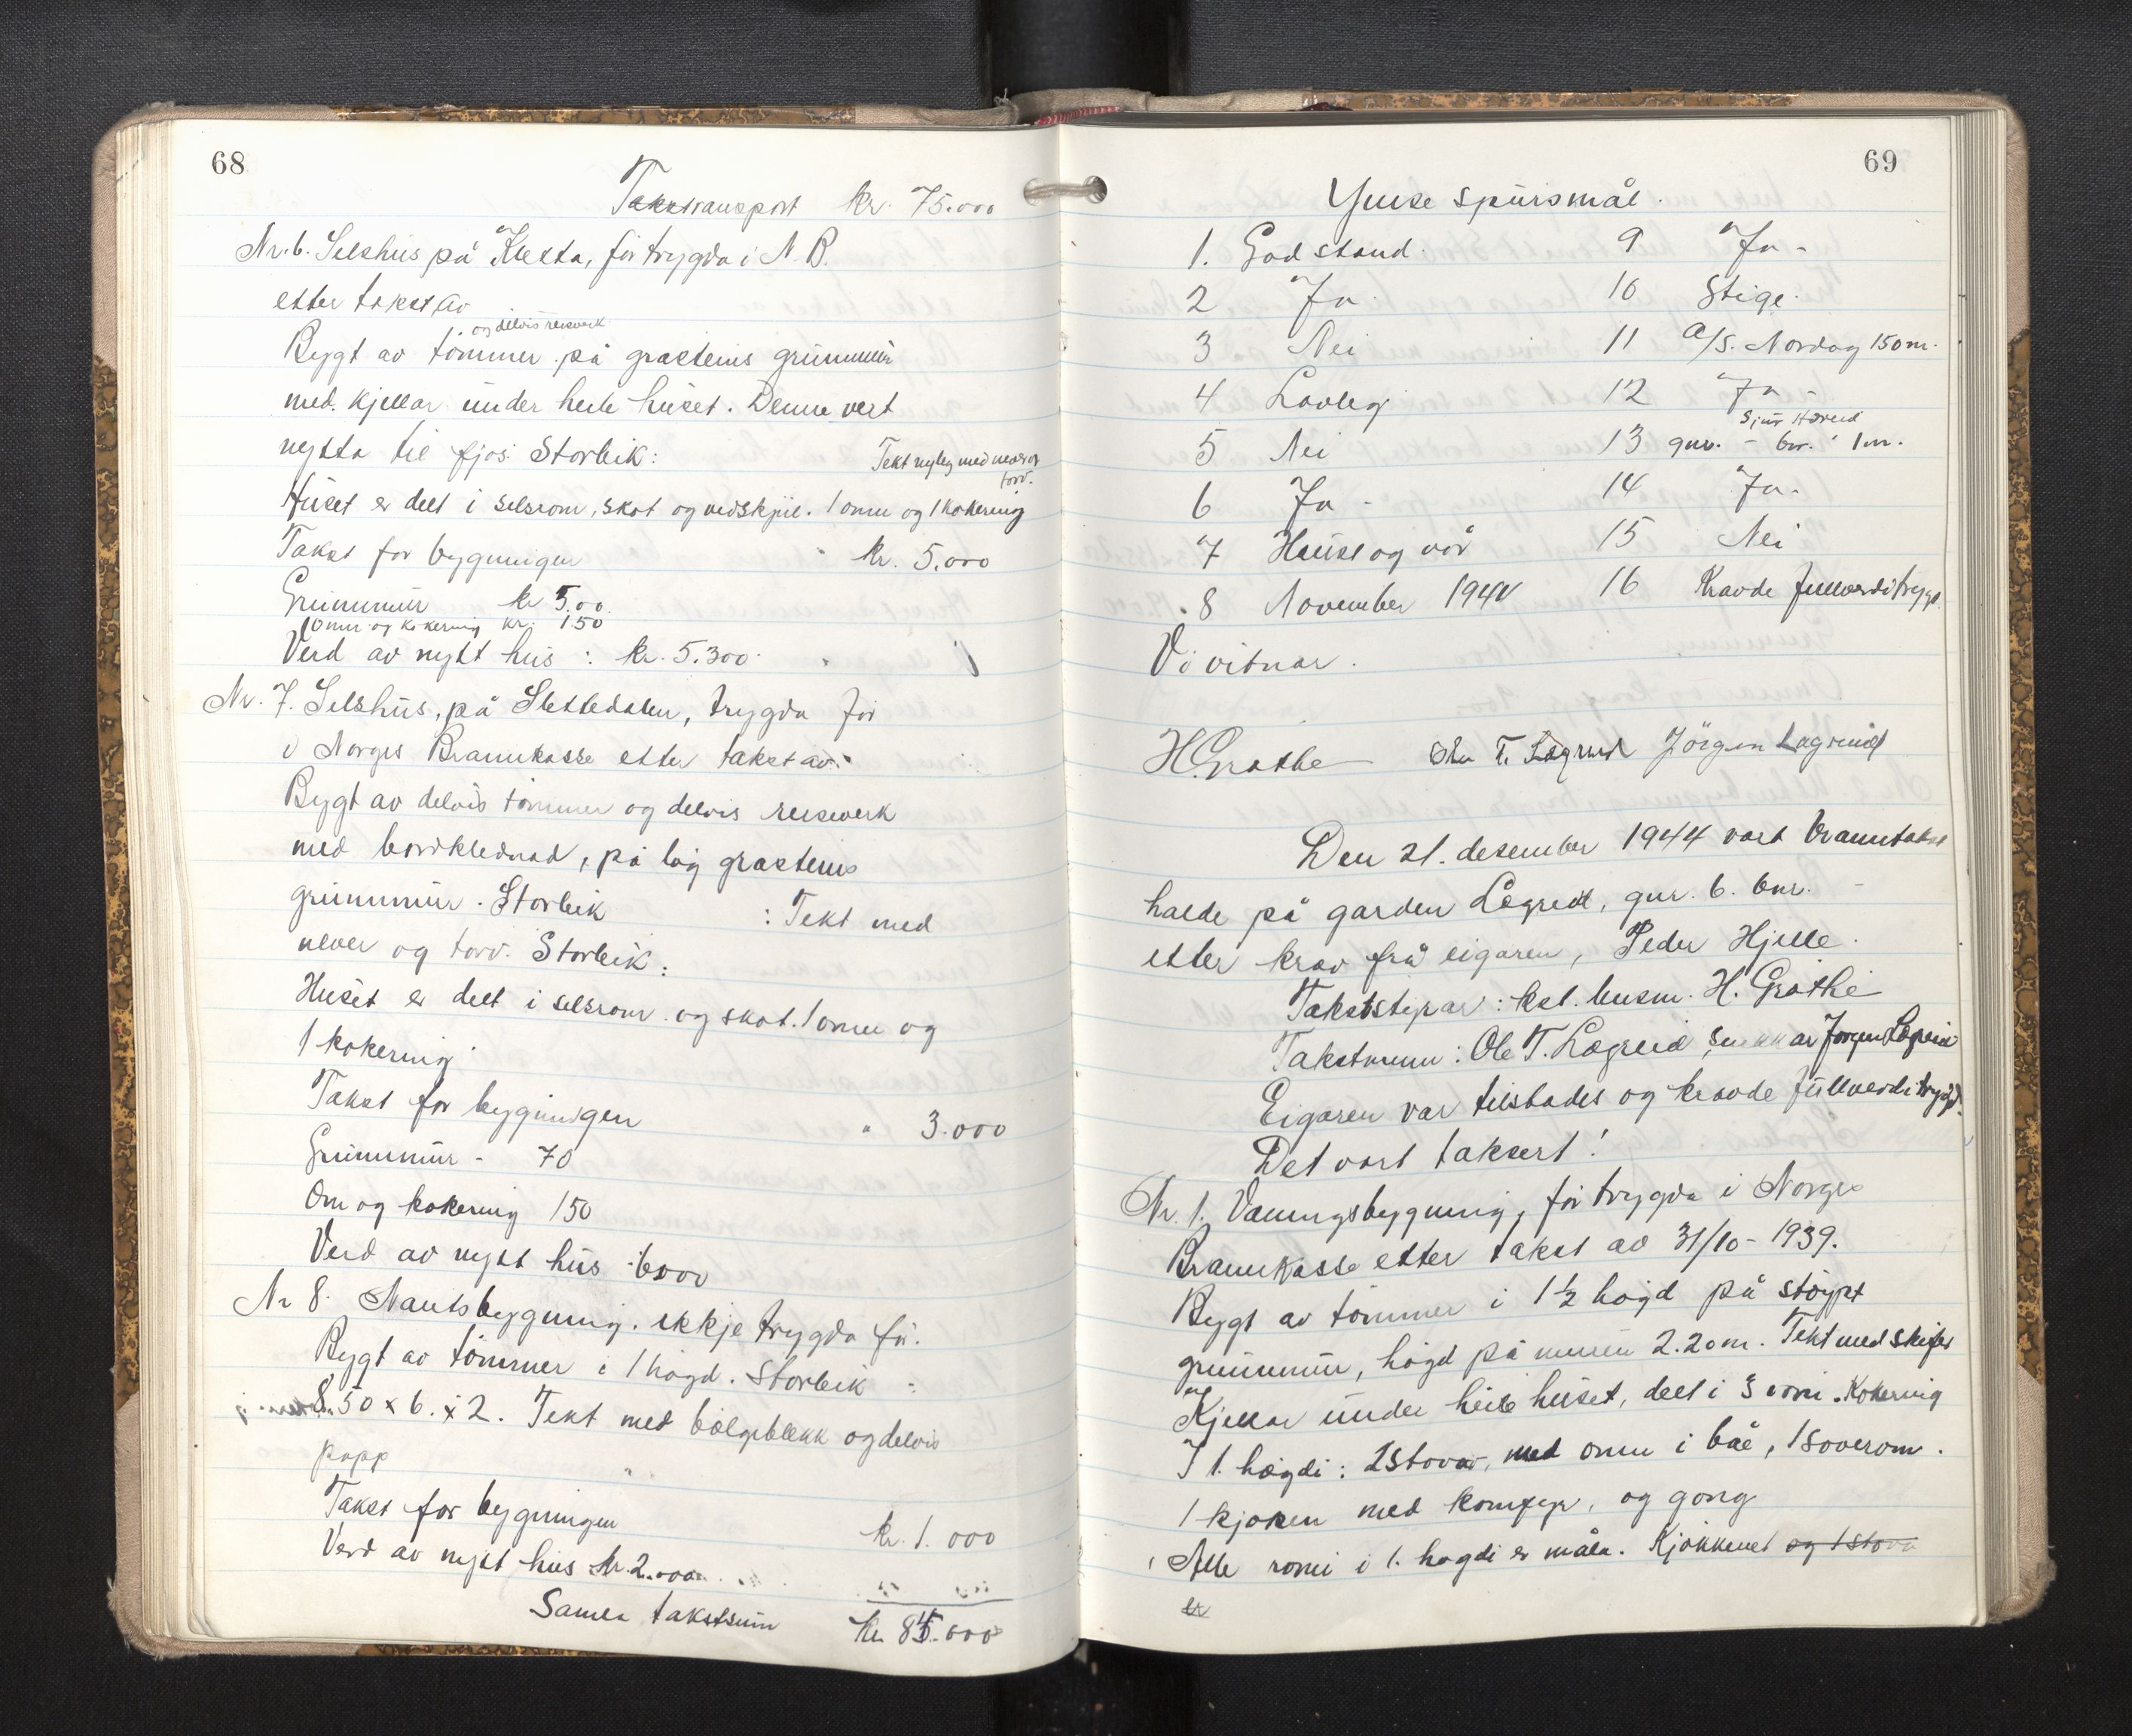 68
Taksttransport kr. 75.000
Nr. 6. Selshus på Kletta, før trygda i N. B.
etter takst av
og delvis reisverk
Bygt av tømmer på gråsteins grunnmur
med kjellar under heile huset. Denne vert
nytta til fjøs. Storleik:
Tekt nyleg med never og
torv.
Huset er delt i selsrom, skot og vedskjul. 1 omn og 1 kokering
Takst for bygningen kr. 5.000
Grunnmur kr 500.
1 omn og kokering kr. 150
Verd av nytt hus : kr. 5.300
Nr. 7. Selshus, på Slettedalen, trygda før
i Norges Brannkasse etter takst av:
Bygt av delvis tømmer og delvis reisverk
med bordklednad, på låg gråsteins
grunnmur. Storleik : Tekt med
never og torv. Storleik:
Huset er delt i selsrom og skot. 1 omn og
1 kokering
Takst for bygningen " 3.000
Grunnmur - 70
Omn og kokering 150
Verd av nytt hus 6000
Nr 8. Naustbygning. ikkje trygda før.
Bygt av tømmer i 1 høgd. Storleik :
8.50 x 6. x 2. Tekt med bølgeblekk og delvis
papp
Takst for bygningen kr. 1.000
Verd av nytt hus kr. 2.000
Samla takstsum kr. 84.000
69
Ymse spursmål.
1. God stand.
2 Ja.
3 Nei
4 Lovleg
5 Nei
6 Ja -
7 Huse og vår
8 November 1944
9 Ja -
10 Stige.
11 A/S. Nordag 150 m.
12 Ja -
13 gnr. - bnr. 1 m.
14 Ja -
15 Nei
16 Kravde fullverditrygd.
Vi vitnar.
H. Grathe Ole T. Lægreid Jörgen Lægreid
Den 21. desember 1944 vart branntakst
halde på garden Lægreid, gnr. 6. bnr. -
etter krav frå eigaren, Peder Hjelle.
Takststyrar: kst. lensm. H. Grathe
Takstmenn: Ole T. Lægreid, snikkar Jørgen Lægreid
Eigaren var tilstades og kravde fullverditrygd.
Det vart taksert!
Nr. 1. Våningsbygning, før trygda i Norges
Brannkasse etter takst av 31/10 - 1939.
Bygt av tømmer i 1½ høgd på støypt
grunnmur, høgd på muren 2.20 m. Tekt med skifer
Kjellar under heile huset, delt i 3 rom. Kokering
I 1. høgdi: 2 stovor, med omn i båe, 1 soverom.
1 kjøken med komfyr, og gong
Alle romi i 1. høgdi er måla. Kjøkkenet og 1 stova
er